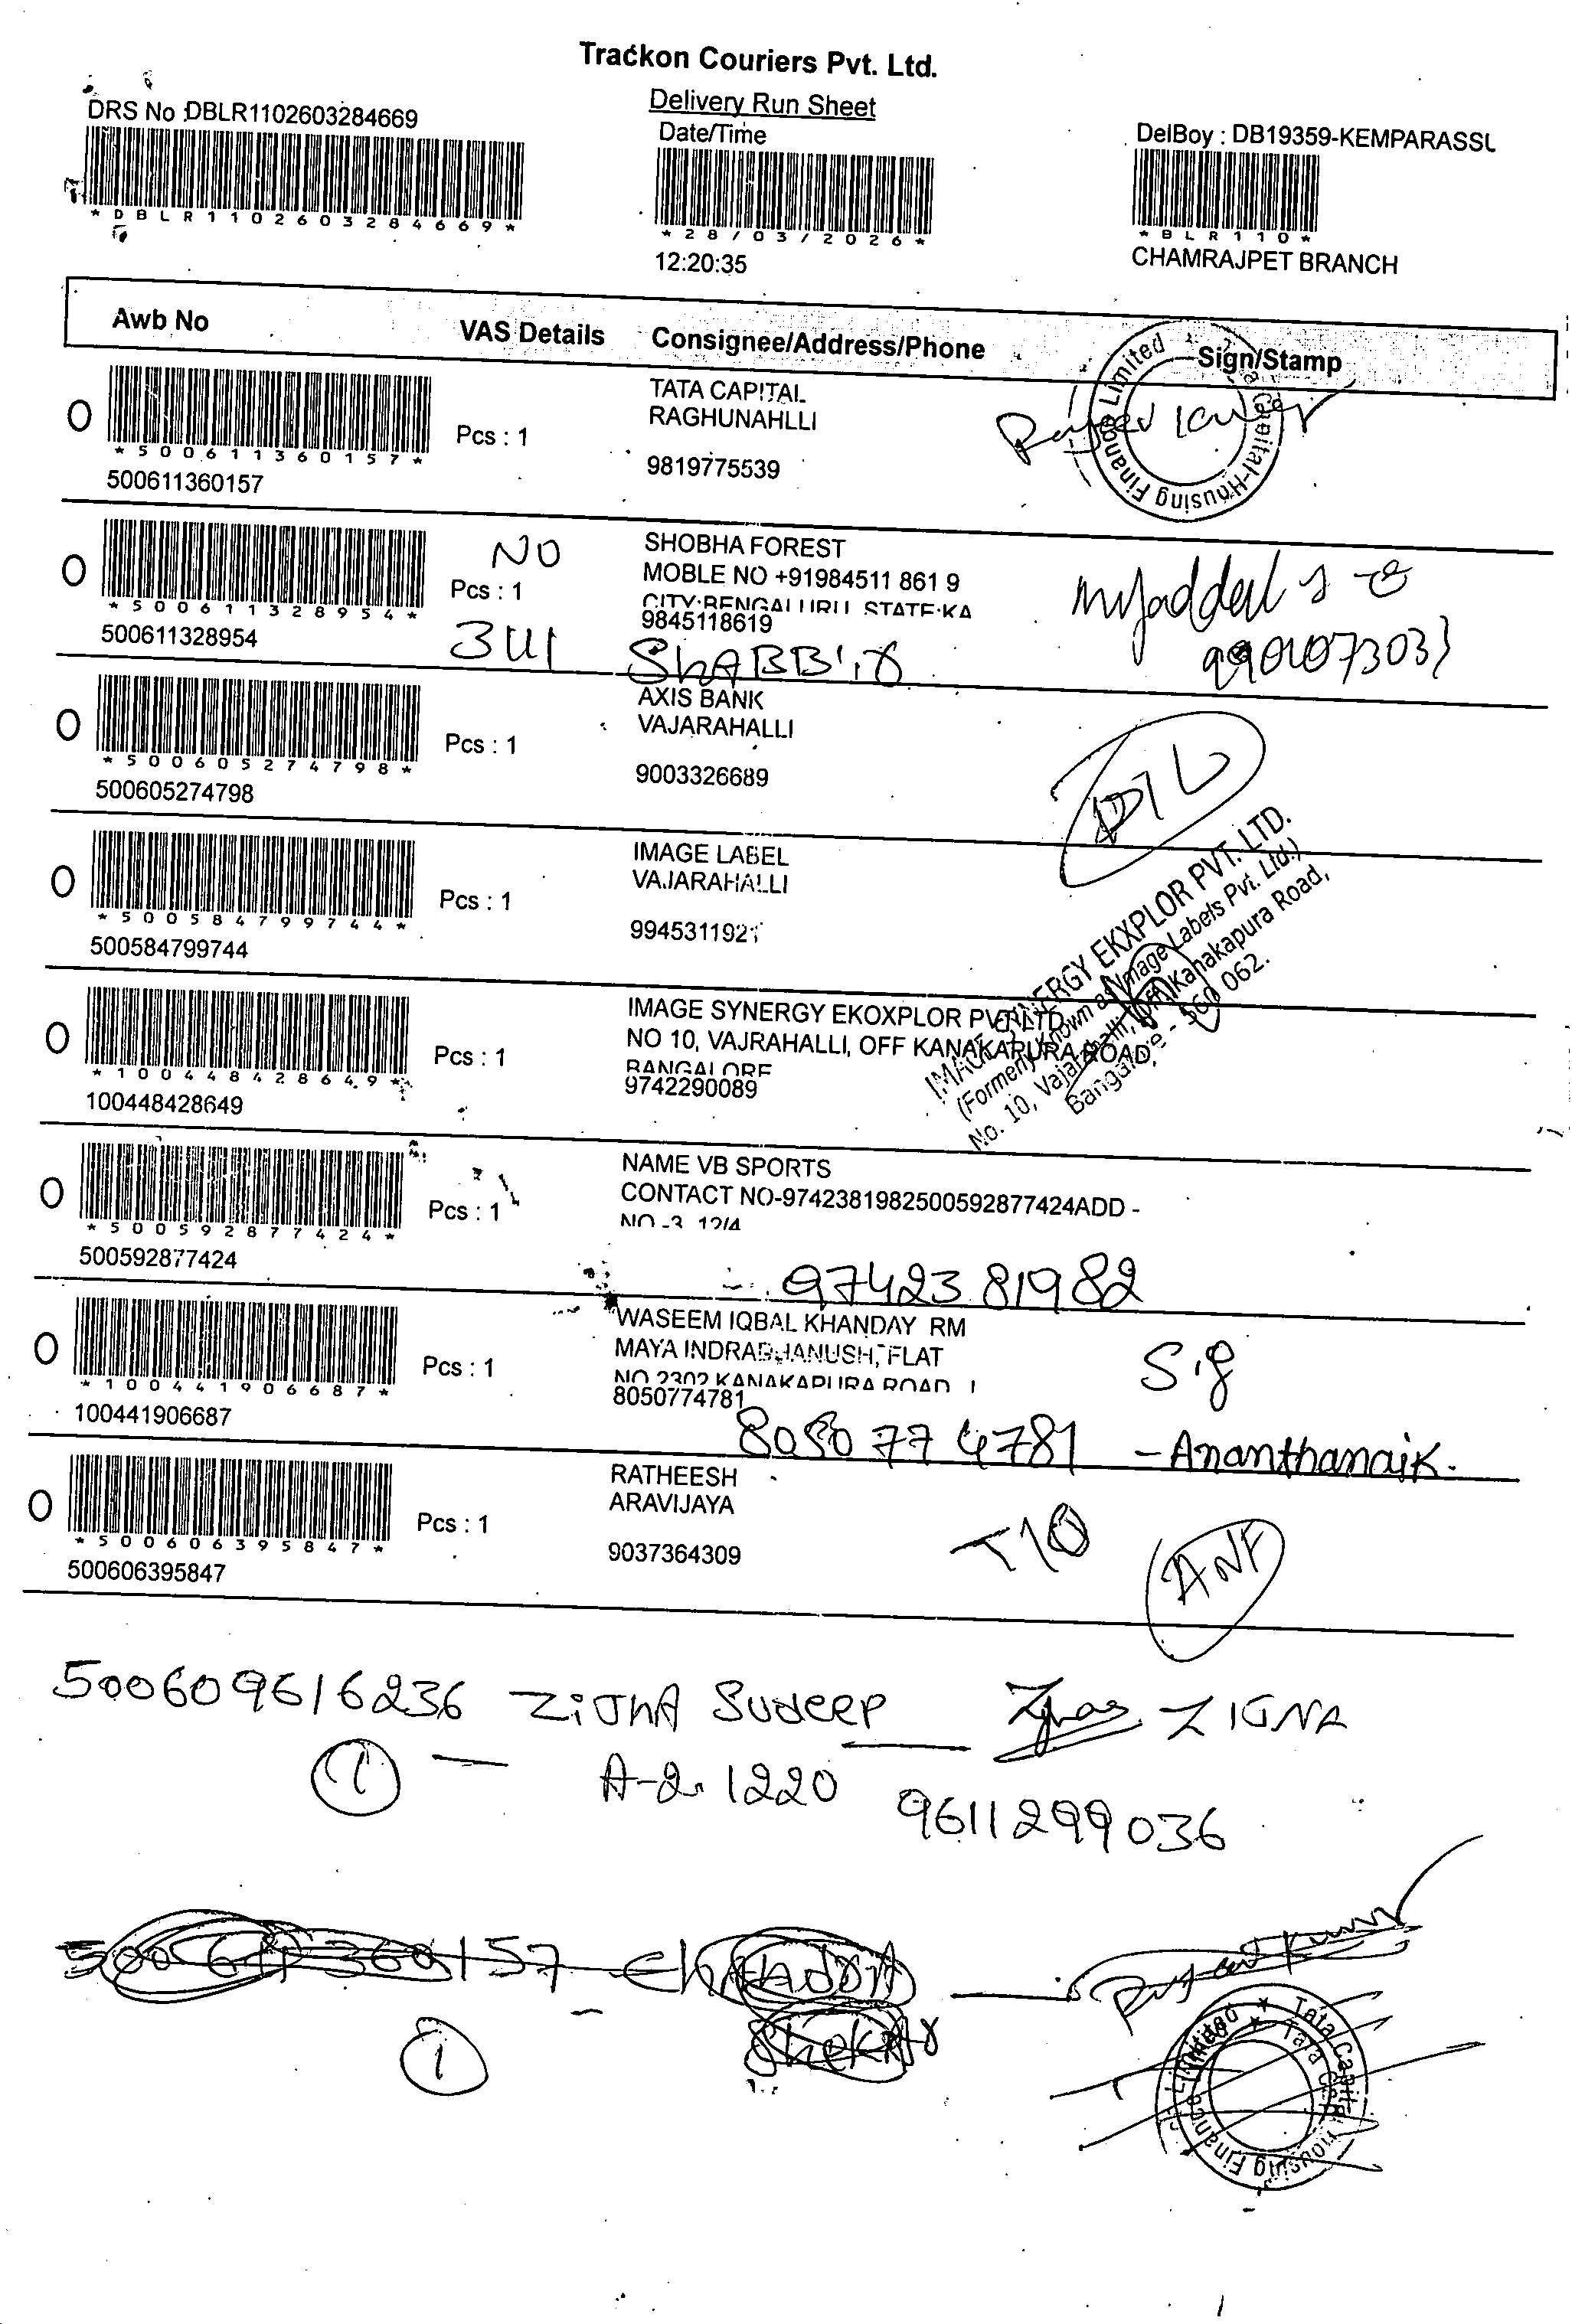 Trackon Couriers Pvt. Ltd.
Delivery Run Sheet
DRS No :DBLR1102603284669
*DBLR1102603284669*
Date/Time
*28/03/2026*
12:20:35
DelBoy : DB19359-KEMPARASSU
*BLR110*
CHAMRAJPET BRANCH
Awb No VAS Details Consignee/Address/Phone Sign/Stamp
*500611360157*
500611360157
Pcs : 1
TATA CAPITAL
RAGHUNAHLLI
9819775539
Tata Capital Housing Finance Limited
*500611328954*
500611328954
NO
Pcs : 1
3411
SHOBHA FOREST
MOBLE NO +91984511 861 9
CITY:BENGALURU STATE:KA
9845118619
ShABBir
*500605274798*
500605274798
Pcs : 1
AXIS BANK
VAJARAHALLI
9003326689
*500584799744*
500584799744
Pcs : 1
IMAGE LABEL
VAJARAHALLI
9945311921
*100448428649*
100448428649
Pcs : 1
IMAGE SYNERGY EKOXPLOR PVT LTD
NO 10, VAJRAHALLI, OFF KANAKAPURA ROAD,
BANGALORE
9742290089
IMAGE SYNERGY EKXPLOR PVT. LTD.
(Formerly known as Image Labels Pvt. Ltd.)
No. 10, Vajarahalli, Off. Kanakapura Road,
Bangalore - 560 062.
*500592877424*
500592877424
Pcs : 1
NAME VB SPORTS
CONTACT NO-9742381982500592877424ADD -
NO -3 12/4
9742381982
*100441906687*
100441906687
Pcs : 1
WASEEM IQBAL KHANDAY RM
MAYA INDRADHANUSH, FLAT
NO 2302 KANAKAPURA ROAD
8050774781
Sig
8050774781 - Ananthanaik.
*500606395847*
500606395847
Pcs : 1
RATHEESH
ARAVIJAYA
9037364309
ANF
500609616236 Sudeep ZIGNA
1 - A-2. 1220
9611299036
500611360157
1
Tata Capital Housing Finance Limited